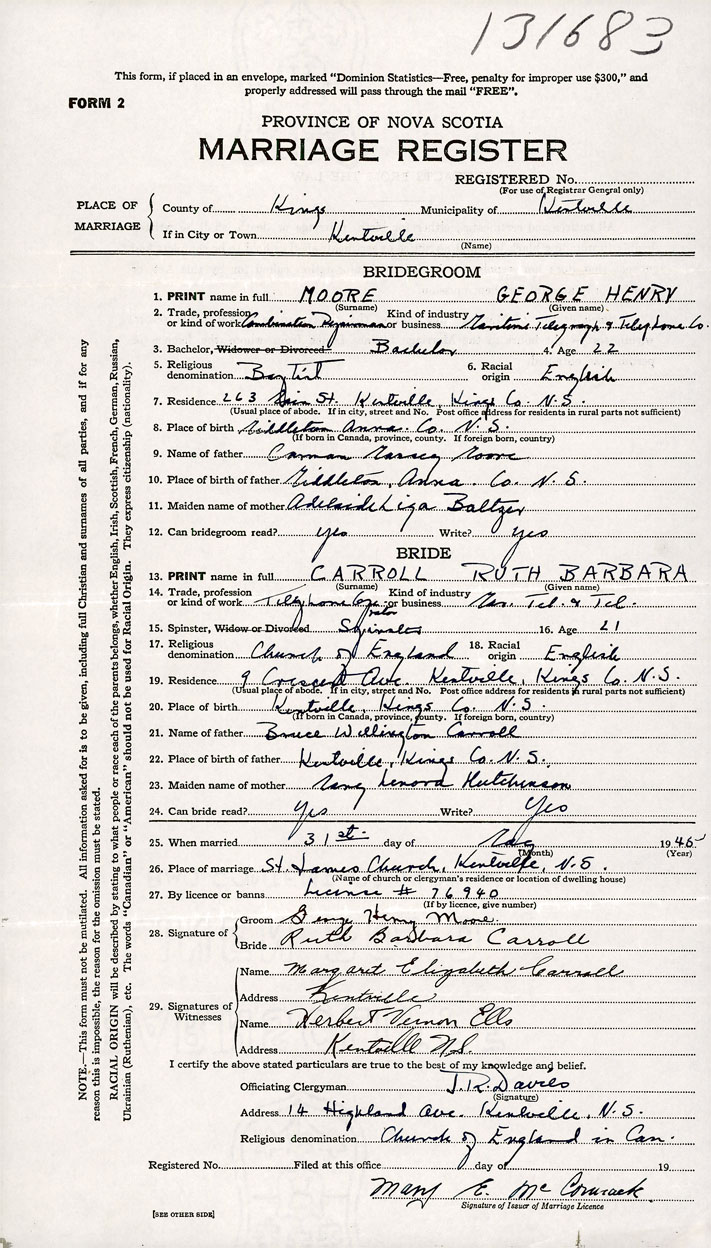 131683
This form, if placed in an envelope, marked "Dominion Statistics—Free, penalty for improper use $300," and
properly addressed will pass through the mail "FREE".
FORM 2
PROVINCE OF NOVA SCOTIA
MARRIAGE REGISTER
REGISTERED No.
(For use of Registrar General only)
PLACE OF MARRIAGE
County of Kings Municipality of Kentville
If in City or Town Kentville
(Name)
BRIDEGROOM
1. PRINT name in full MOORE GEORGE HENRY
(Surname) (Given name)
2. Trade, profession or kind of work Combination Repairman Kind of industry or business Maritime Telegraph & Telephone Co.
3. Bachelor, Widower or Divorced Bachelor 4. Age 22
5. Religious denomination Baptist 6. Racial origin English
7. Residence 263 Main St. Kentville, Kings Co. N.S.
(Usual place of abode. If in city, street and No. Post office address for residents in rural parts not sufficient)
8. Place of birth Middleton Anna. Co. N.S.
(If born in Canada, province, county. If foreign born, country)
9. Name of father Carman Massey Moore
10. Place of birth of father Middleton, Anna. Co. N.S.
11. Maiden name of mother Adelaide Liza Baltzer
12. Can bridegroom read? yes Write? yes
BRIDE
13. PRINT name in full CARROLL RUTH BARBARA
(Surname) (Given name)
14. Trade, profession or kind of work Telephone Operator Kind of industry or business Mar. Tel. & Tel.
15. Spinster, Widow or Divorced Spinster 16. Age 21
17. Religious denomination Church of England 18. Racial origin English
19. Residence 9 Crescent Ave. Kentville, Kings Co. N.S.
(Usual place of abode. If in city, street and No. Post office address for residents in rural parts not sufficient)
20. Place of birth Kentville, Kings Co. N.S.
(If born in Canada, province, county. If foreign born, country)
21. Name of father Bruce Willington Carroll
22. Place of birth of father Kentville, Kings Co. N.S.
23. Maiden name of mother Lenora Hutchinson
24. Can bride read? Yes Write? Yes
25. When married 31st. day of May 1945
(Month) (Year)
26. Place of marriage St. James Church, Kentville, N.S.
(Name of church or clergyman's residence or location of dwelling house)
27. By licence or banns License # 76940
(If by licence, give number)
28. Signature of Groom George Henry Moore
Bride Ruth Barbara Carroll
29. Signatures of Witnesses
Name Margaret Elizabeth Carroll
Address Kentville
Name Herbert Vernon Ells
Address Kentville N.S.
I certify the above stated particulars are true to the best of my knowledge and belief.
Officiating Clergyman J.R. Davies
(Signature)
Address 14 Highland Ave. Kentville, N.S.
Religious denomination Church of England in Can.
Registered No. Filed at this office day of 19
Mary E. McCormack
Signature of Issuer of Marriage Licence
[SEE OTHER SIDE]
NOTE.—This form must not be mutilated. All information asked for is to be given, including full Christian and surnames of all parties, and if for any
reason this is impossible, the reason for the omission must be stated.
RACIAL ORIGIN will be described by stating to what people or race each of the parents belongs, whether English, Irish, Scottish, French, German, Russian,
Ukrainian (Ruthenian), etc. The words "Canadian" or "American" should not be used for Racial Origin. They express citizenship (nationality).